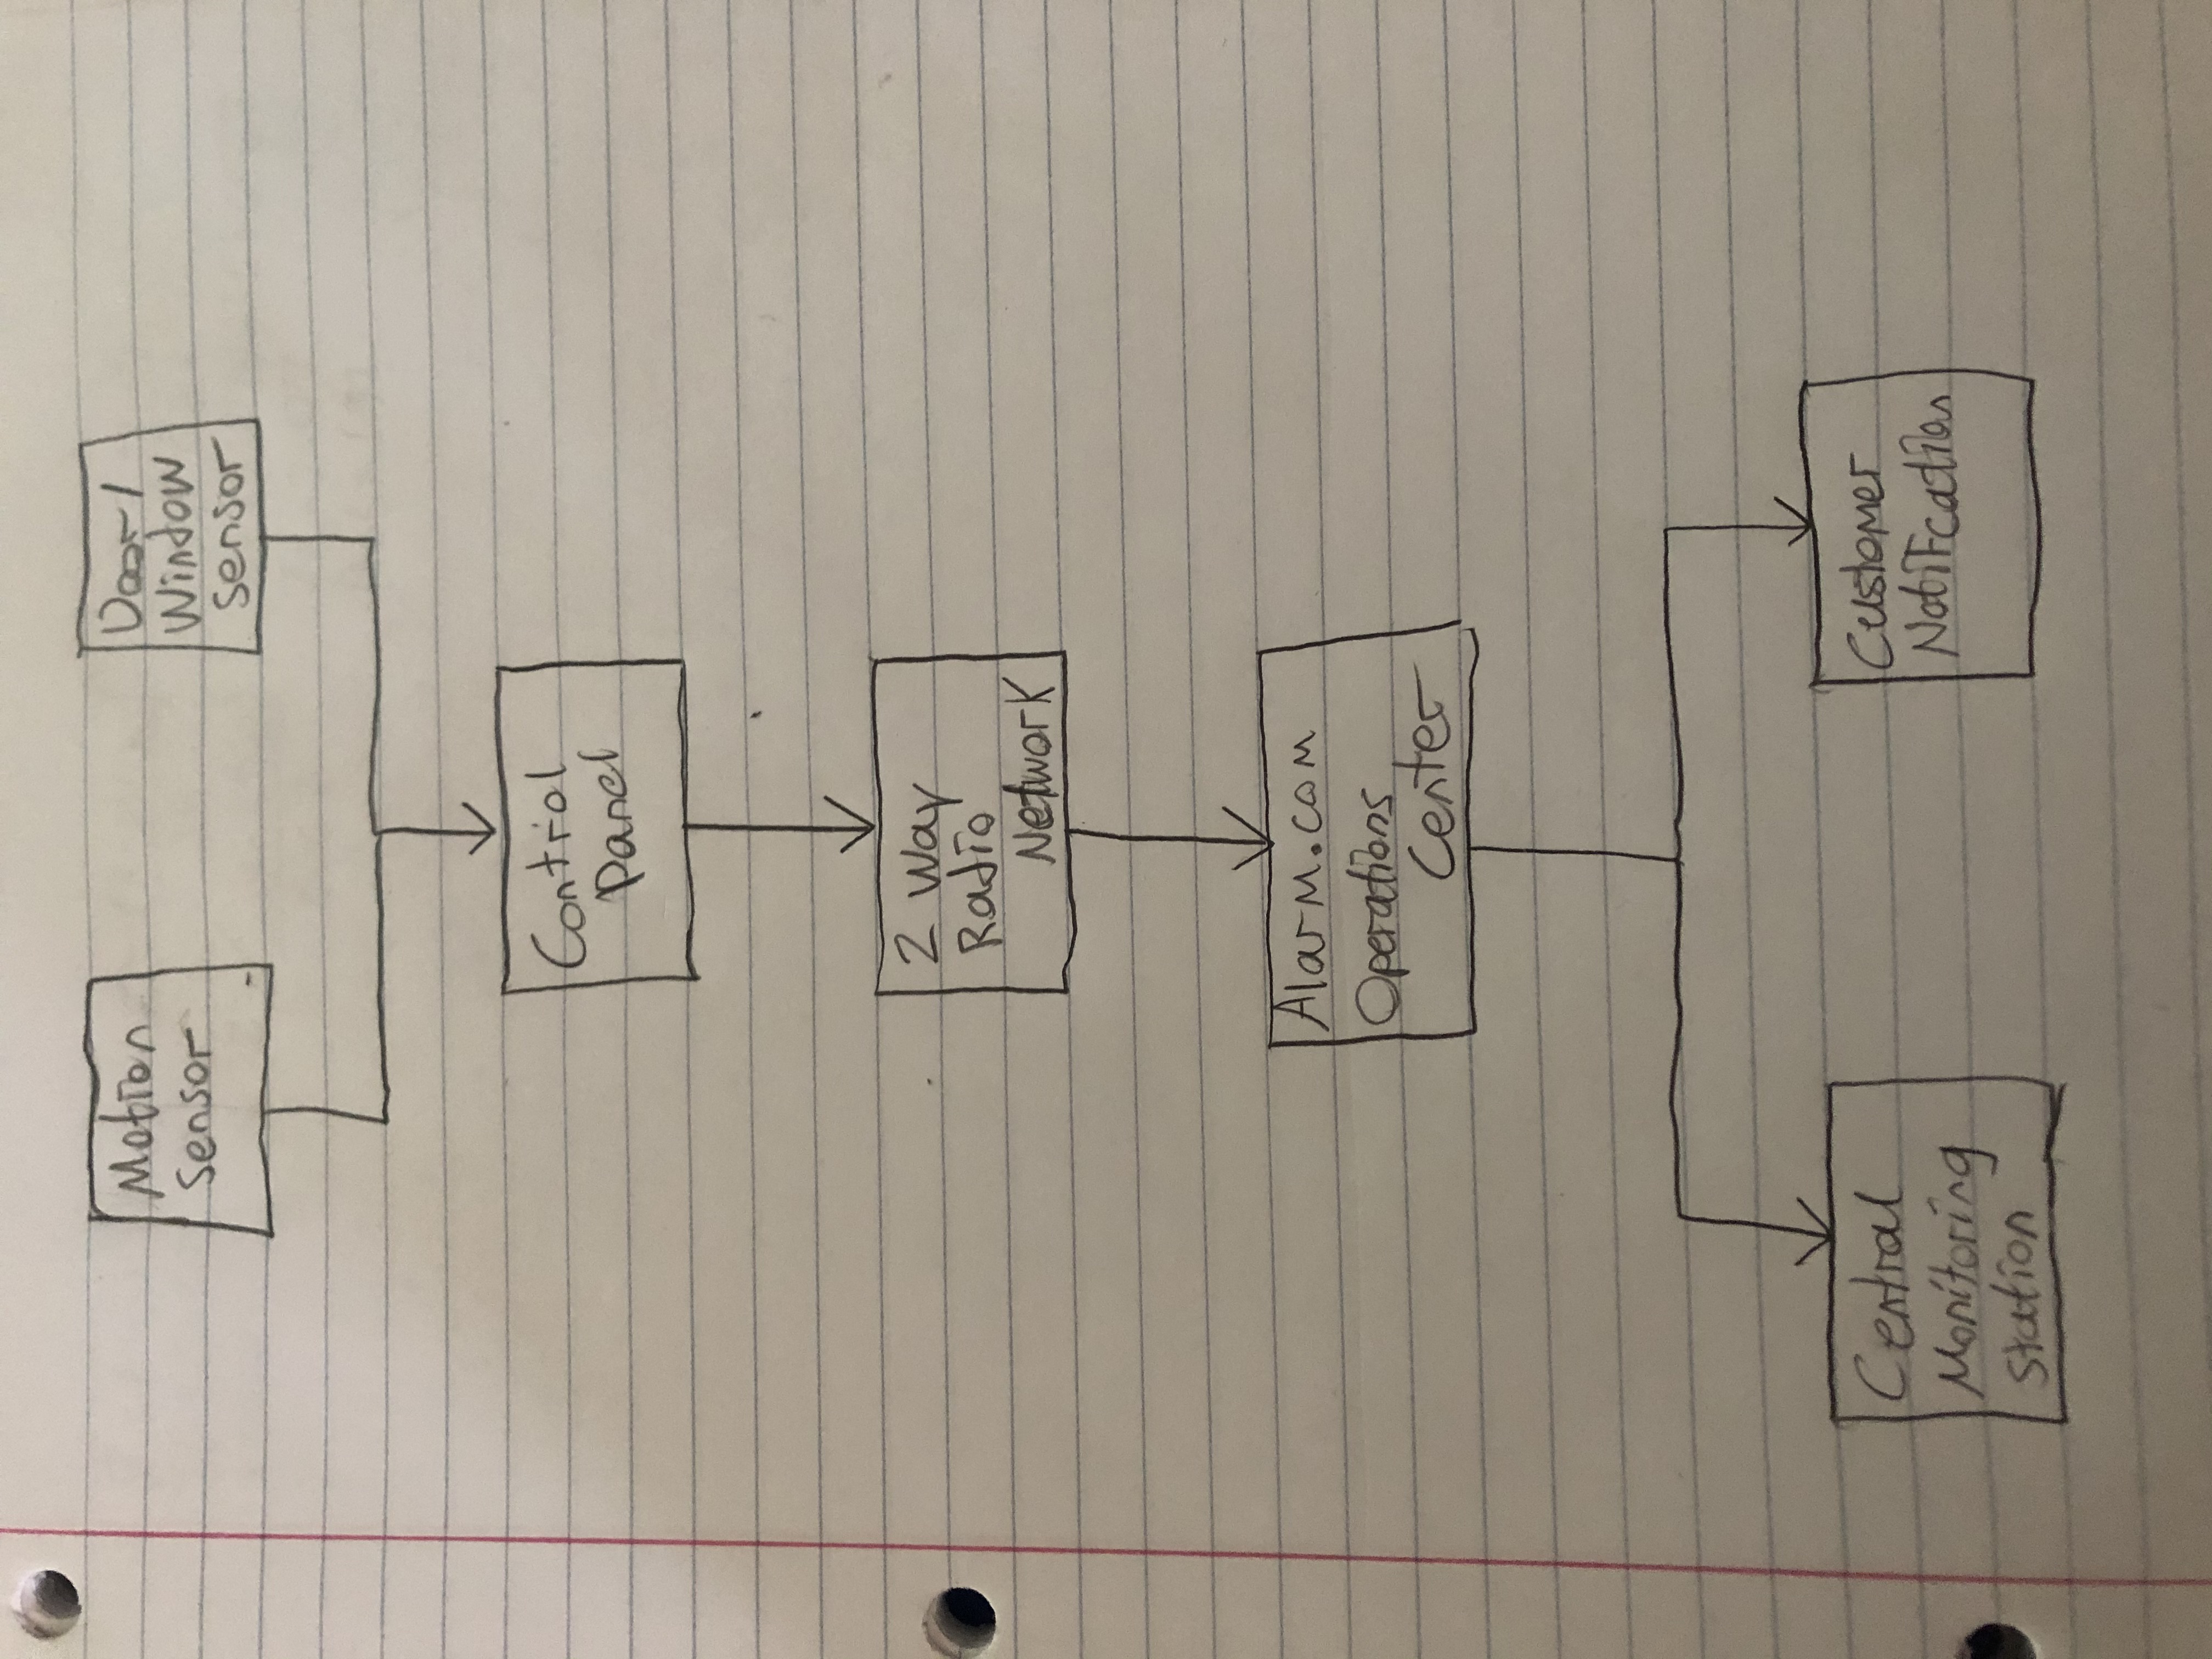 Motion
Sensor
Door/
Window
Sensor
Control
Panel
2 Way
Radio
Network
Alarm.com
Operations
Center
Central
Monitoring
Station
Customer
Notifcation